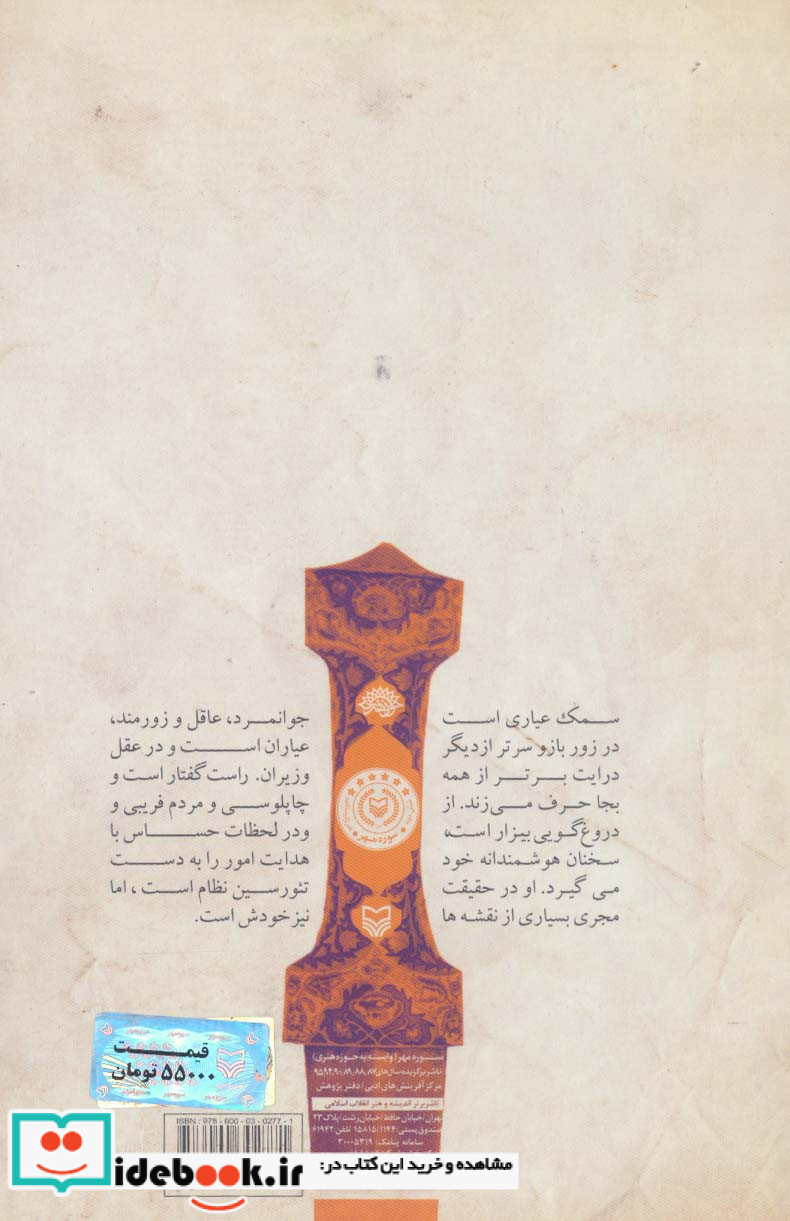 سمک عیاری است جوانمرد، عاقل و زورمند،
در زور بازو سرتر از دیگر عیاران است و در عقل
درایت برتر از همه وزیران. راست گفتار است و
بجا حرف می‌زند. از چاپلوسی و مردم فریبی و
دروغ‌گویی بیزار است، ودر لحظات حساس با
سخنان هوشمندانه خود هدایت امور را به دست
می گیرد. او در حقیقت تئورسین نظام است، اما
مجری بسیاری از نقشه ها نیز خودش است.
سوره مهر
سوره مهر (وابسته به حوزه هنری)
ناشر برگزیده سال‌های
مرکز آفرینش‌های ادبی / دفتر پژوهش
ناشر برتر اندیشه و هنر انقلاب اسلامی
تهران / خیابان حافظ / خیابان رشت / پلاک ۲۳
صندوق پستی: ۱۵۸۱۵/۱۱۴۴ تلفن: ۶۱۹۴۲
سامانه پیامک: ۳۰۰۰۵۳۱۹
قیمت
۵۵۰۰۰ تومان
ISBN: 978-600-03-0277-1
idebook.ir
مشاهده و خرید این کتاب در: